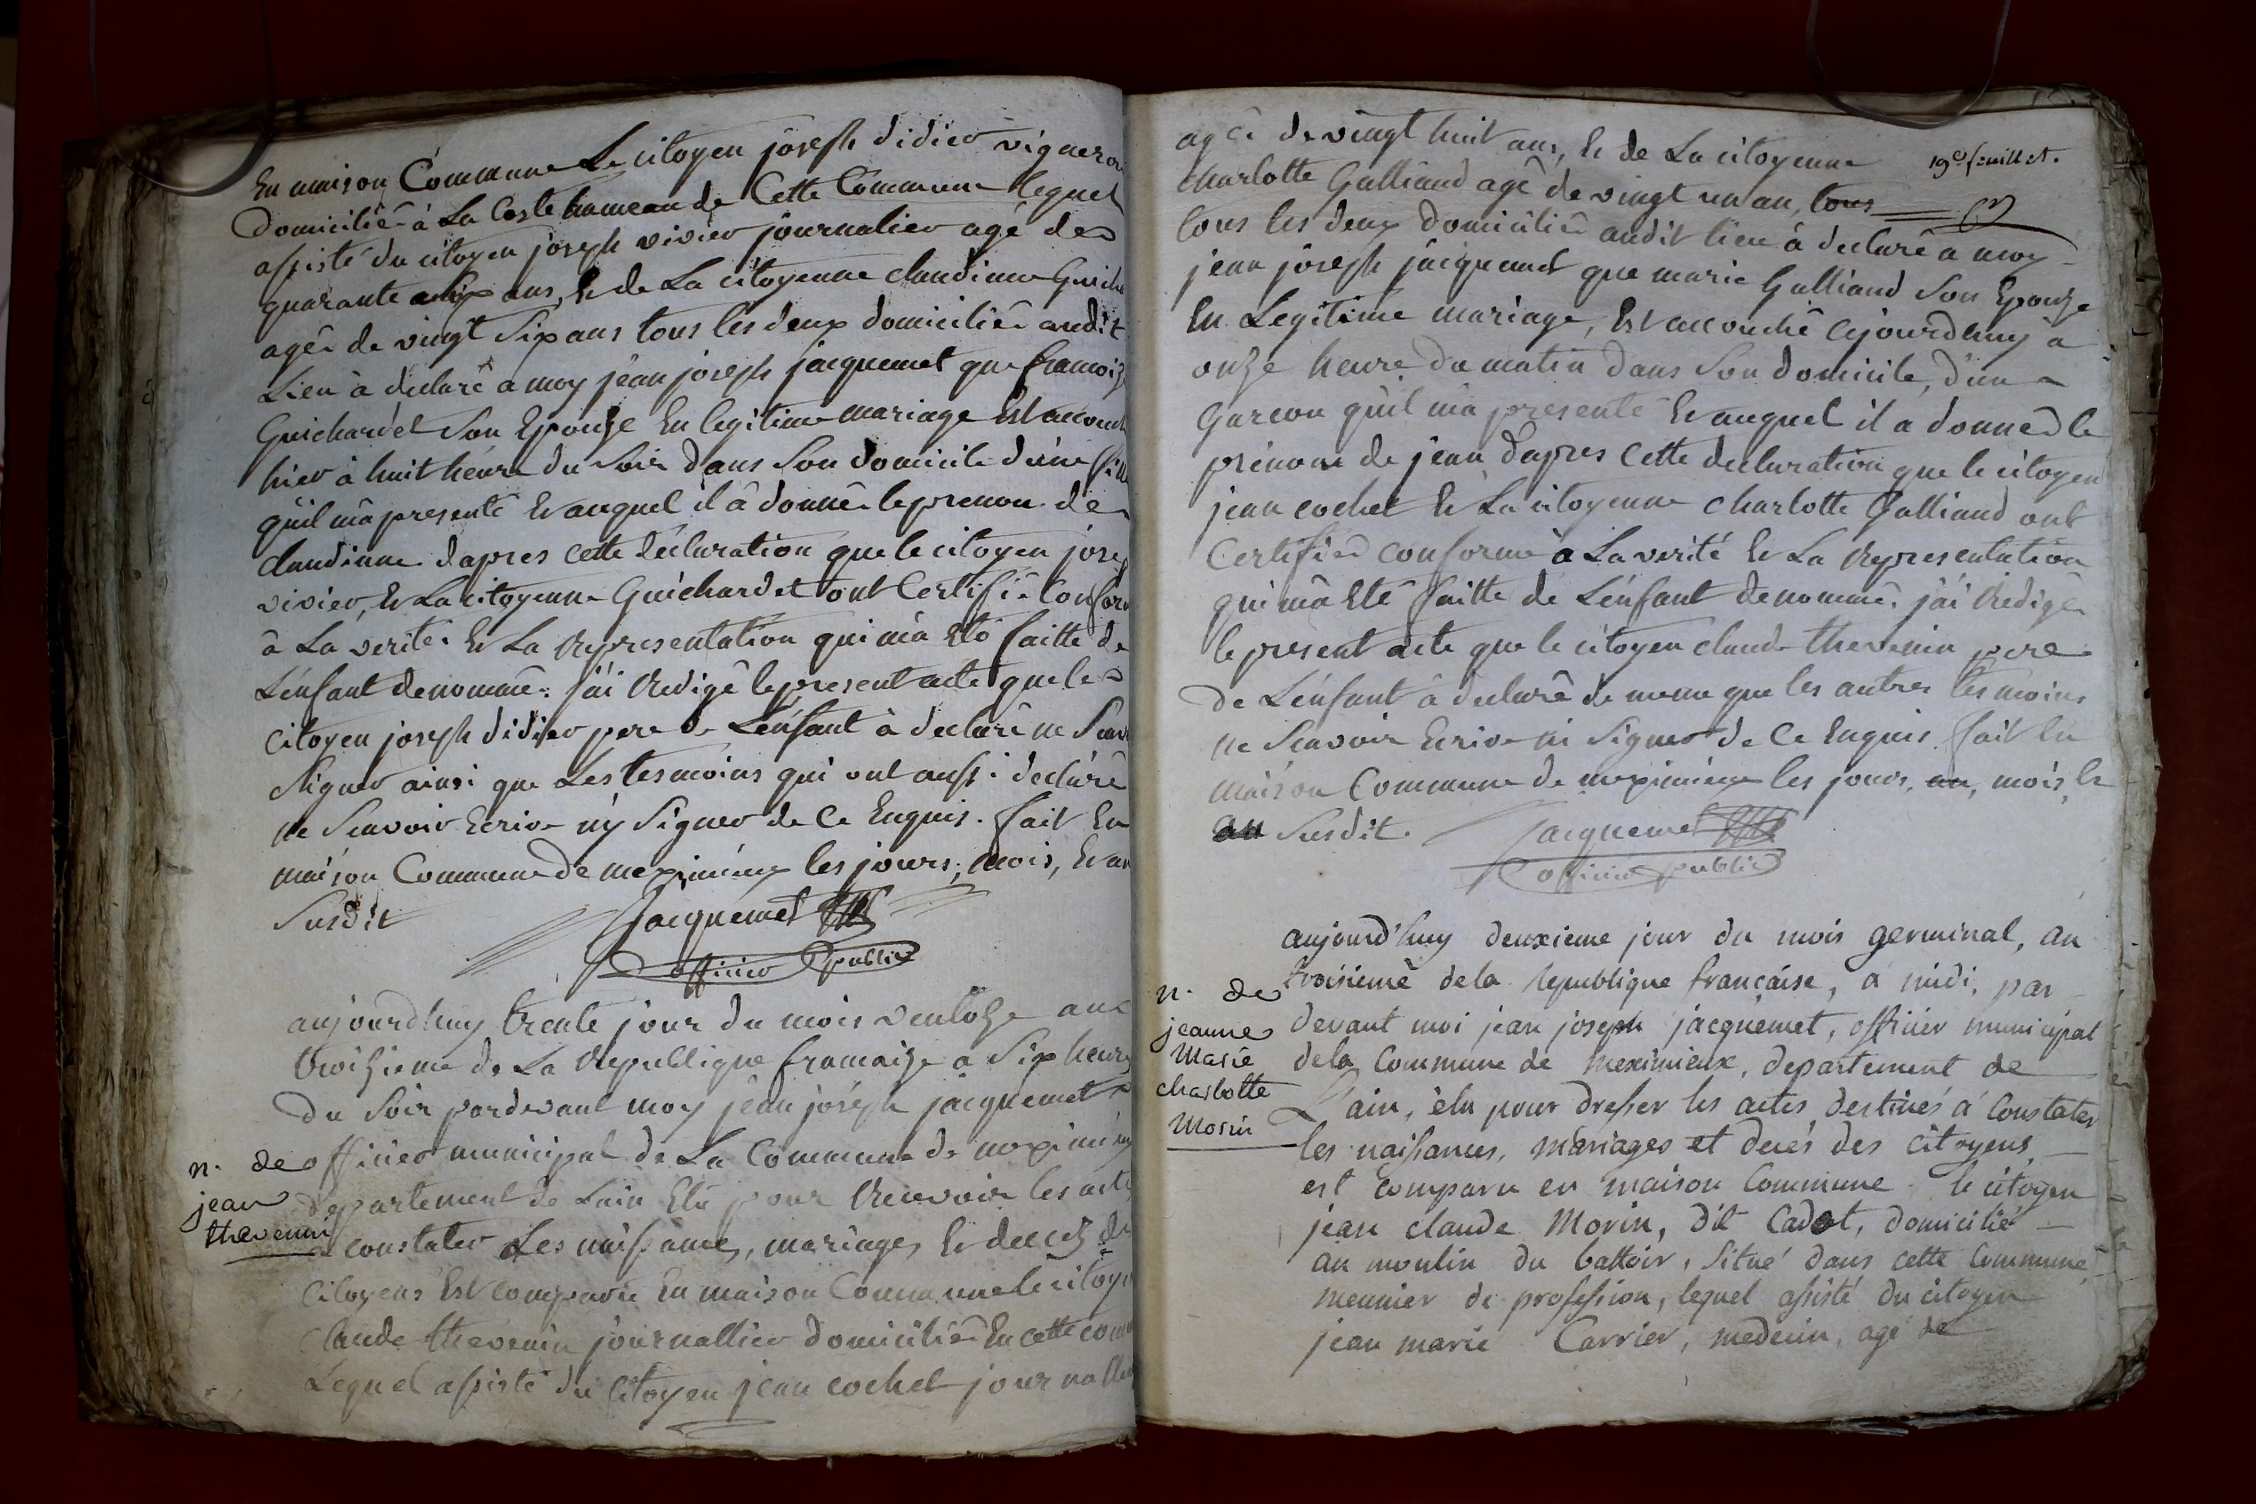 En maison Commune Le citoyen joseph didier vigneron
Domiciliê à La Coste hameau de Cette Commune lequel
assisté du citoyen joseph vivier journalier agé de
quarante ans, Et de La citoyenne claudinne
agêe de vingt Six ans tous les deux domiciliê audit
Lieu à declarê a moy jean joseph jacquemet que francoize
Guichardet Son Epouze En legitime mariage Est accouch
hier à huit heure du Soir Dans Son domicile d'une fille
quil m'a presentê Et auquel il â donnê le prenom de
claudinne dapres cette declaration que le citoyen josep
vivier, Et La citoyenne Guichardet ont Certifiê Conform
â La veritê Et La Representation qui m'a Etê faitte de
L'enfant denommê. j'ai Redigê le present acte que le
citoyen joseph didier pere de L'enfant à declarê ne Scav
Signer ainsi que Les tesmoins qui ont aussi declarê
ne Scavoir Ecrire ny Signer de Ce Enquis. fait En
maison Commune De meximieux les jours, mois, Et an
Susdit
Jacquemet
officier public
aujourd'huy trente jour du mois ventoze an
troizieme de La Republique francaize a Six heure
du Soir pardevant moy jean joseph jacquemet
n. de
jean
thevenin
officier municipal de La Commune de meximieux
departement de Lain Elû pour Recevoir les acte
a constater Les naissances, mariages Et decez de
Citoyens Est comparu En maison Commune le citoye
Claude thevenin journallier domiciliê En cette com
Lequel assistê du Citoyen jean cochet journallie
19e feuillet.
agê de vingt huit ans, Et de La citoyenne
charlotte Galliand agê de vingt un an, tous
tous les deux domiciliê audit lieu à declarê a moy
jean joseph jacquemet que marie Galliand Son Epouze
En Legitime mariage, Est accouchê cejourdhuy à
onze heure du matin Dans Son domicile, d'un
Garcon quil m'a presentê Et auquel il a donnê le
prenom de jean Dapres Cette declaration que le citoyen
jean cochet Et La citoyenne charlotte Galliand ont
Certifiê conforme à La veritê Et La Representation
qui m'â Etê faitte de L'enfant denommê. j'ai Redigê
le present acte que le citoyen claude thevenin pere
de L'enfant â declarê de meme que les autres tesmoins
ne Scavoir Ecrire ni Signer de Ce Enquis. fait En
maison Commune de meximieux les jours, an, mois, Et
an Susdit.
Jacquemet
officier public
n. de
jeanne
Marie
charlotte
Morin
aujourd'huy deuxieme jour du mois germinal, an
troisieme de la republique française, a midi, par
devant moi jean joseph jacquemet, officier municipal
de la Commune de Meximieux, departement de
L'ain, élu pour dresser les actes destinés à constater
les naissances, mariages et decés des citoyens
est comparu en maison commune le citoyen
jean claude Morin, dit Cadet, domicilié
au moulin du battoir, Situé dans cette Commune
meunier de profession, lequel assisté du citoyen
jean marie Carrier, medecin, agé de